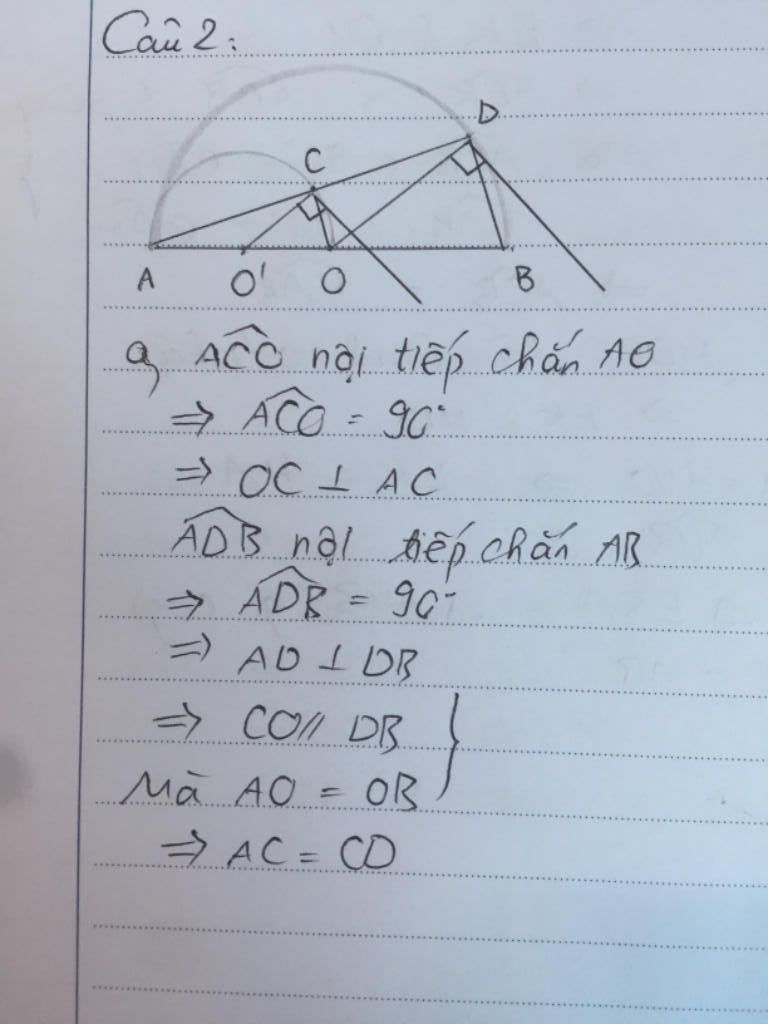 Câu 2:
D
C
A O' O B
a) ACO nội tiếp chắn AO
⇒ ACO = 90°
⇒ OC ⊥ AC
ADB nội tiếp chắn AB
⇒ ADB = 90°
⇒ AD ⊥ DB
⇒ CO // DB
Mà AO = OB
⇒ AC = CD